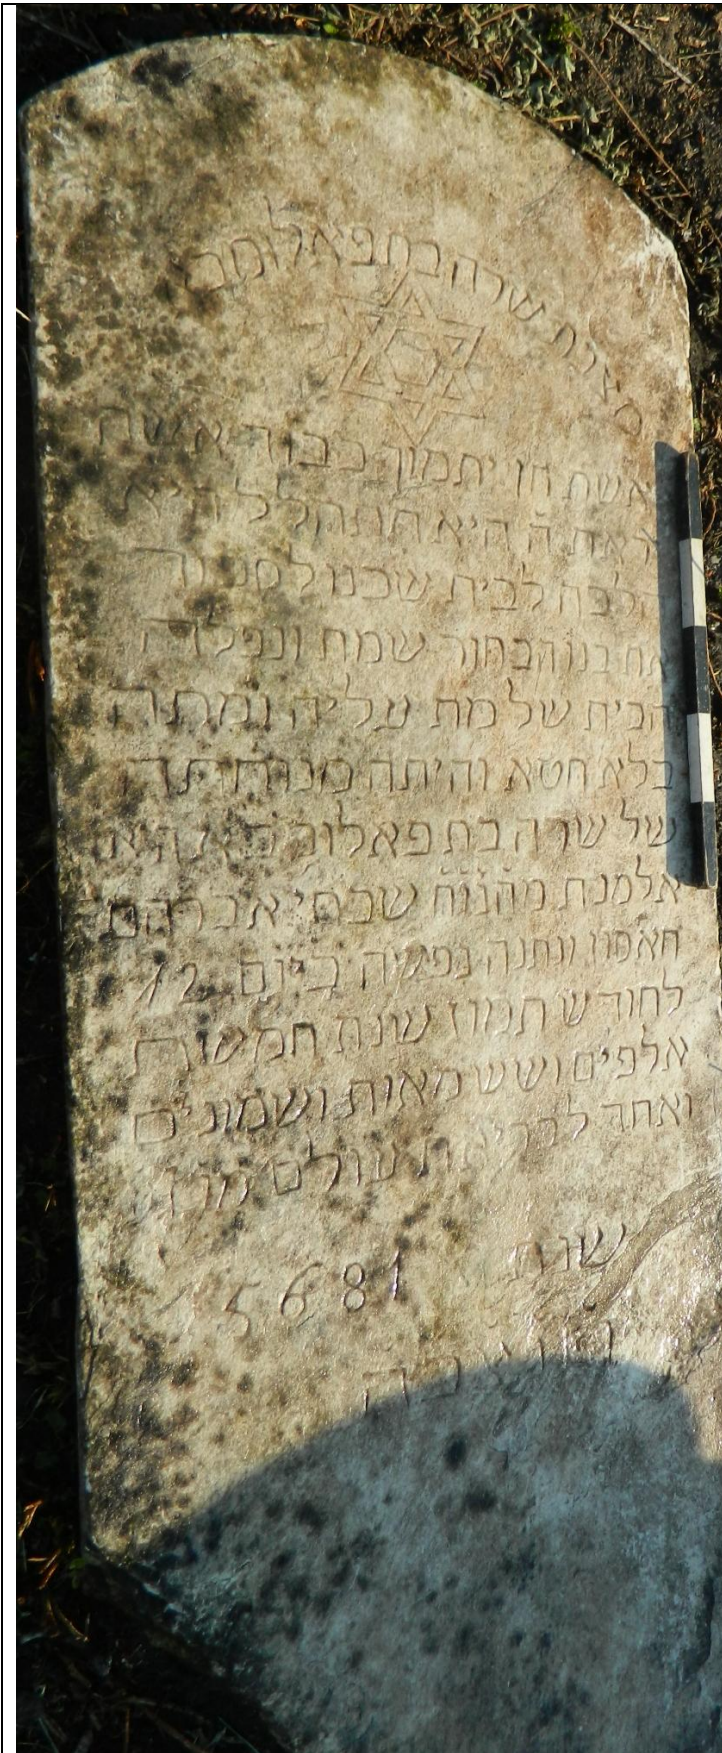 שרה בת פאלומבו
אשת חן יתמוך כבוד אשת
יראת ה היא תתהלל היא
הלכה לבית שכנו
את בנו הבחור שמח ונפלה
הבית של מת עליה ומתה
בלא חטא והיתה מנוחתה
של שרה בת פאלומבו היא
אלמנת מהמנוח שבתי אברהם
חאסון ונתנה נפשה ביום 12
לחודש תמוז שנת חמשת
אלפים ושש מאות ושמונים
ואחד לבריאת עולם
שנת 5681